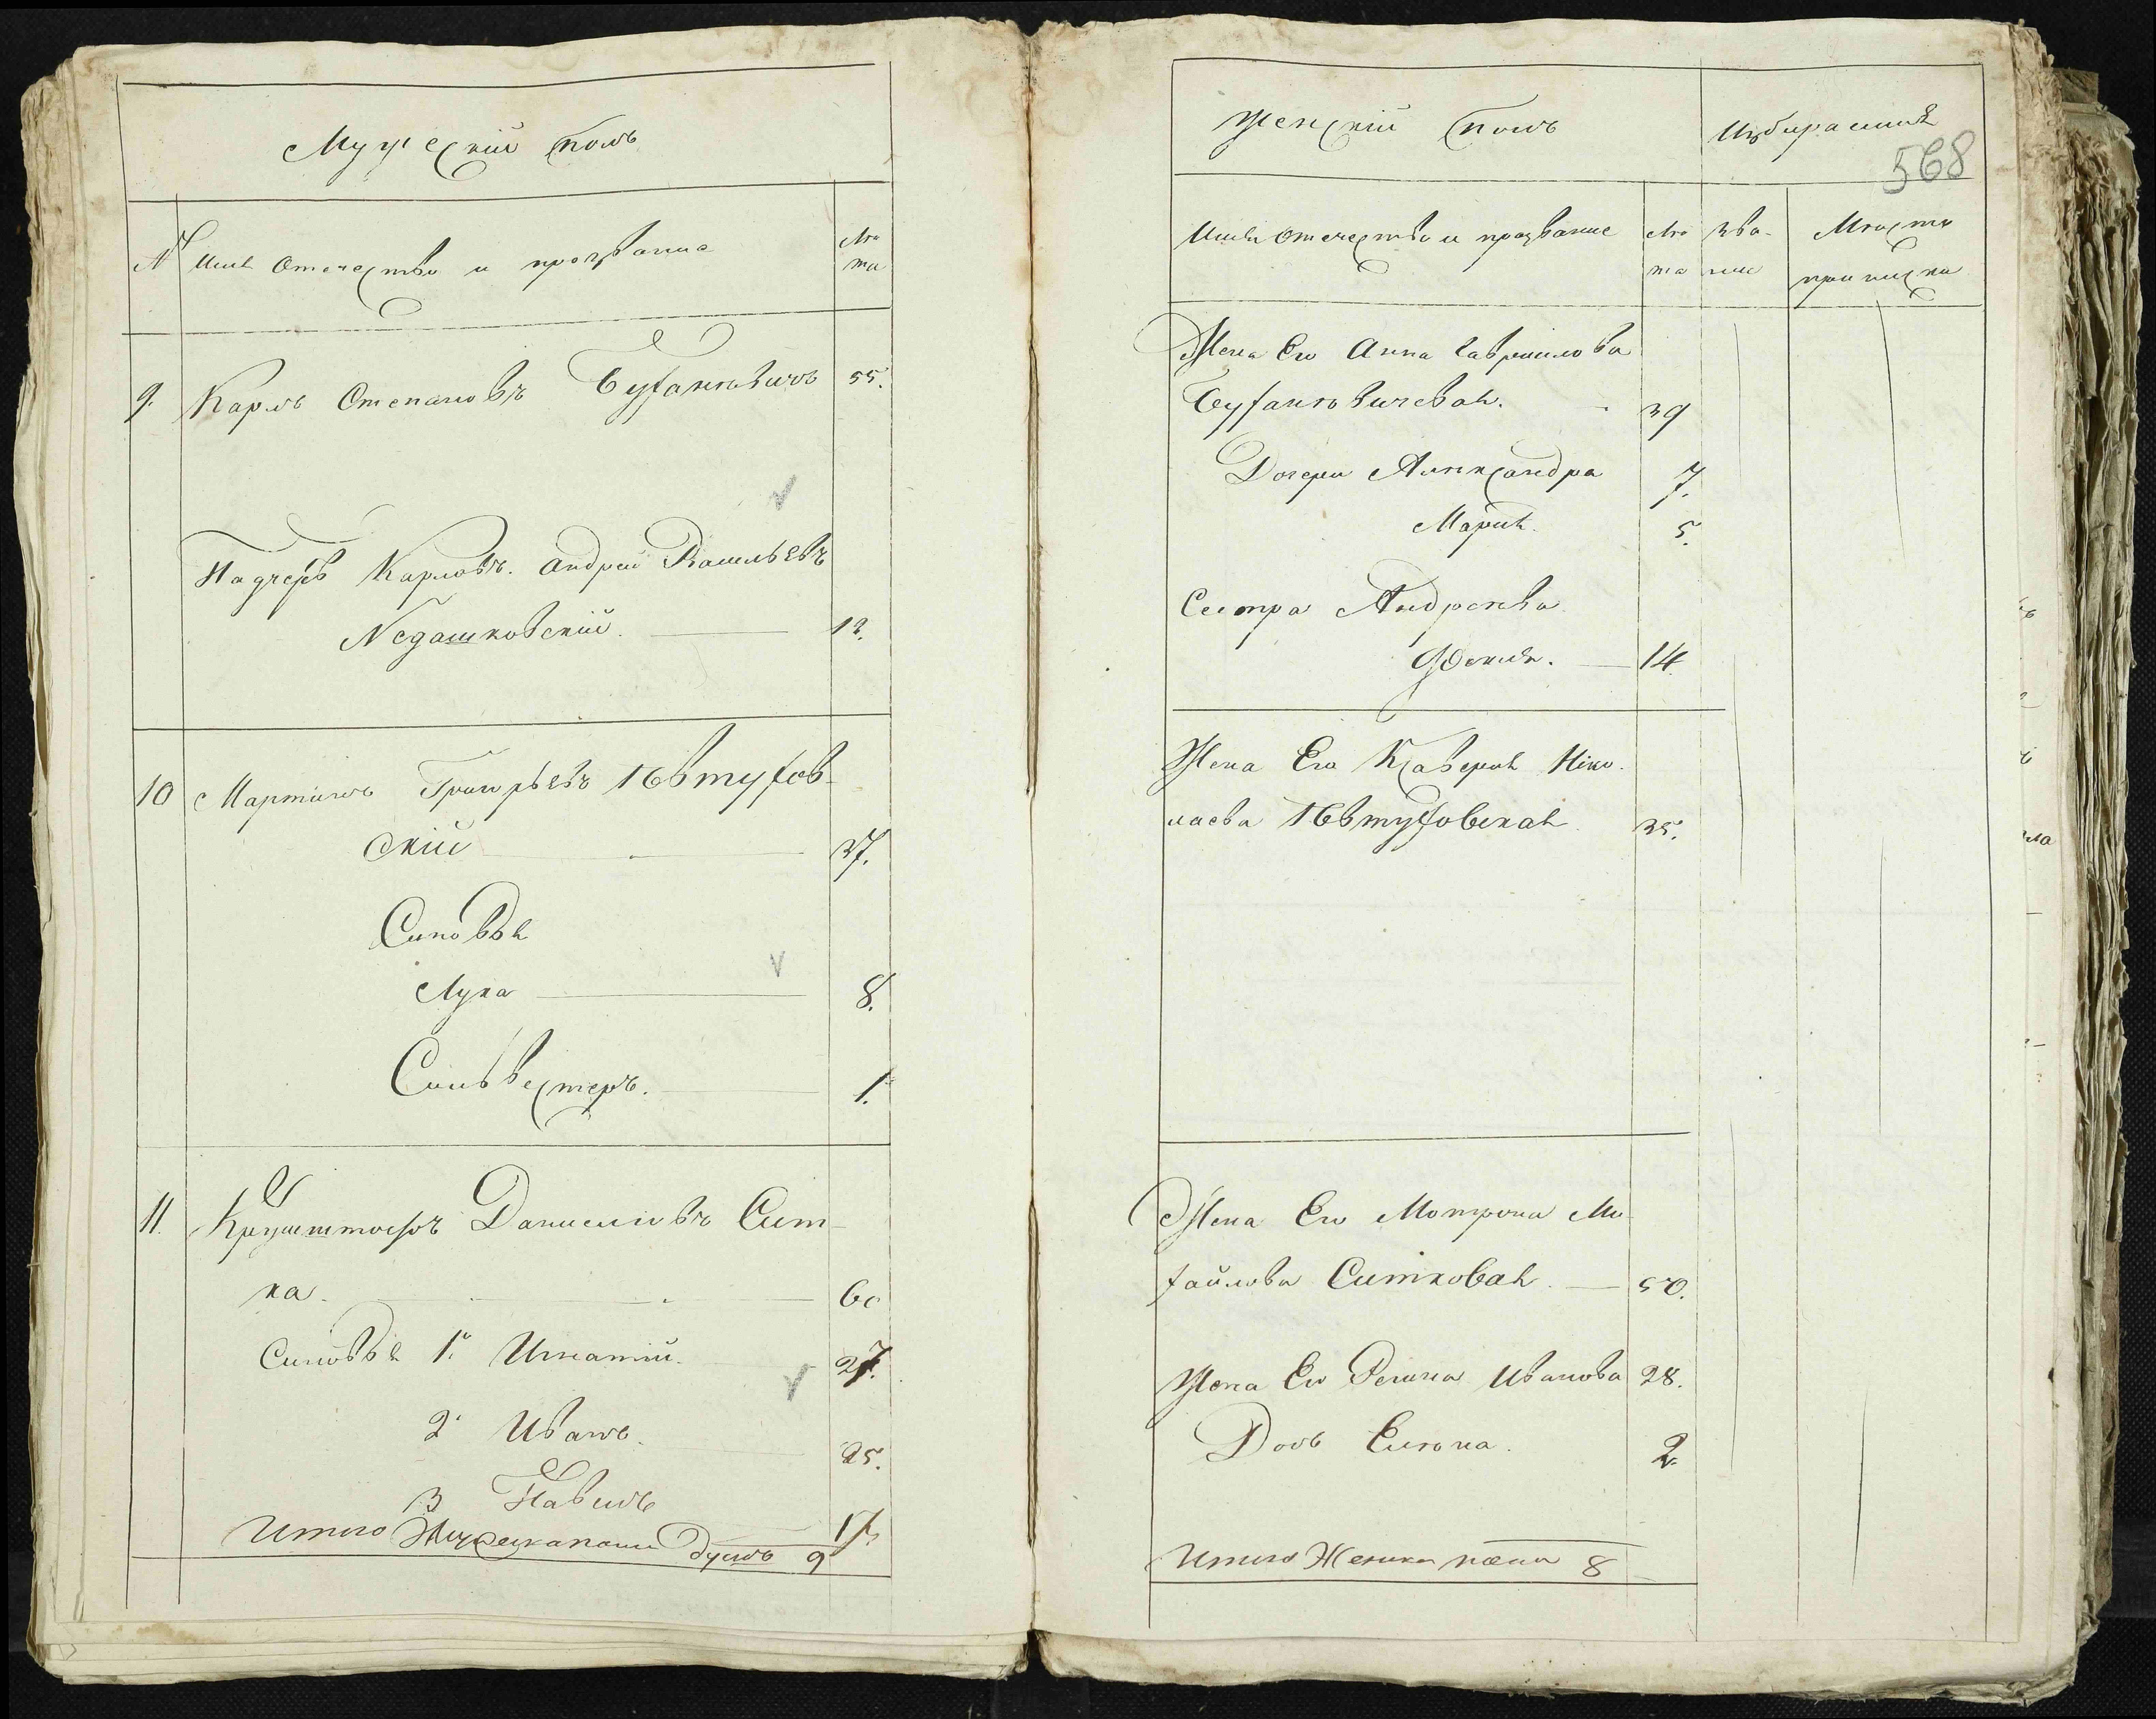 Мужескій полъ
№ Имя Отечество и прозвание
Лѣ
та
9. Карлъ Степановъ Бухановичъ 55.
Карловъ. Андрей Васильевъ
Недашковскій. 12.
10 Мартинъ Григорьевъ Ӏевтухов-
скій 37.
Синовья
Лука 8.
Сильвестеръ. 1.
11. Даниловъ Сит-
ка. 60
Синовья 1й Игнатій. 27.
2й Иванъ. 25.
3 Павелъ 17
Итого Мужеска пола душъ 9
Женскій полъ
Избирание
568
Имя Отечество и прозвание
Лѣ
та
Зва-
ние
Мѣсто
приписки
Жена Его Анна Гавриилова
39
Дочери Александра 7.
Марія. 5.
Сестра Андреева
14
Жена Его Ксаверія Нико-
лаева Ӏевтуховская 35.
Жена Его Мотрона Ми-
хайлова Ситковая 50.
Жена Его Регина Иванова 28.
Дочь Елена. 2
Итого Женска пола 8